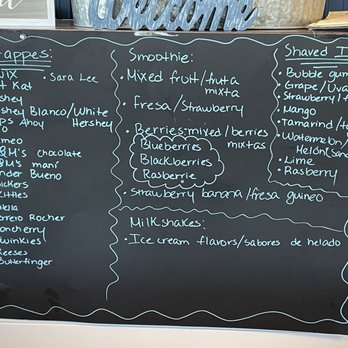 Welcome
appes:
Sara Lee
Kat
shey
shey Blanco/White
Hershey
ps Ahoy
omeo
&M's chocolate
&M's maní
nder Bueno
ickers
ittles
errero Rocher
oncherry
winkies
eeses
Butterfinger
Smoothie:
• Mixed fruit/fruta
mixta
• Fresa/Strawberry
• Berries:mixed/berries
mixtas
Blueberries
Blackberries
Rasberrie
• Strawberry banana/fresa guineo
Milkshakes:
• Ice cream flavors/sabores de helado
Shaved I
• Bubble gum
• Grape/Uva
• Strawberry/f
• Mango
• Tamarind/t
• Watermelon/
Melón(San
• Lime
• Rasberry